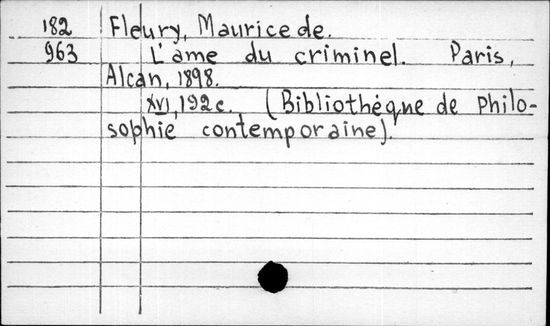 182 Fleury, Maurice de.
963 L'ame du criminel. Paris,
Alcan, 1898.
XVI, 192 c. (Bibliothéqne de Philo-
sophie contemporaine).